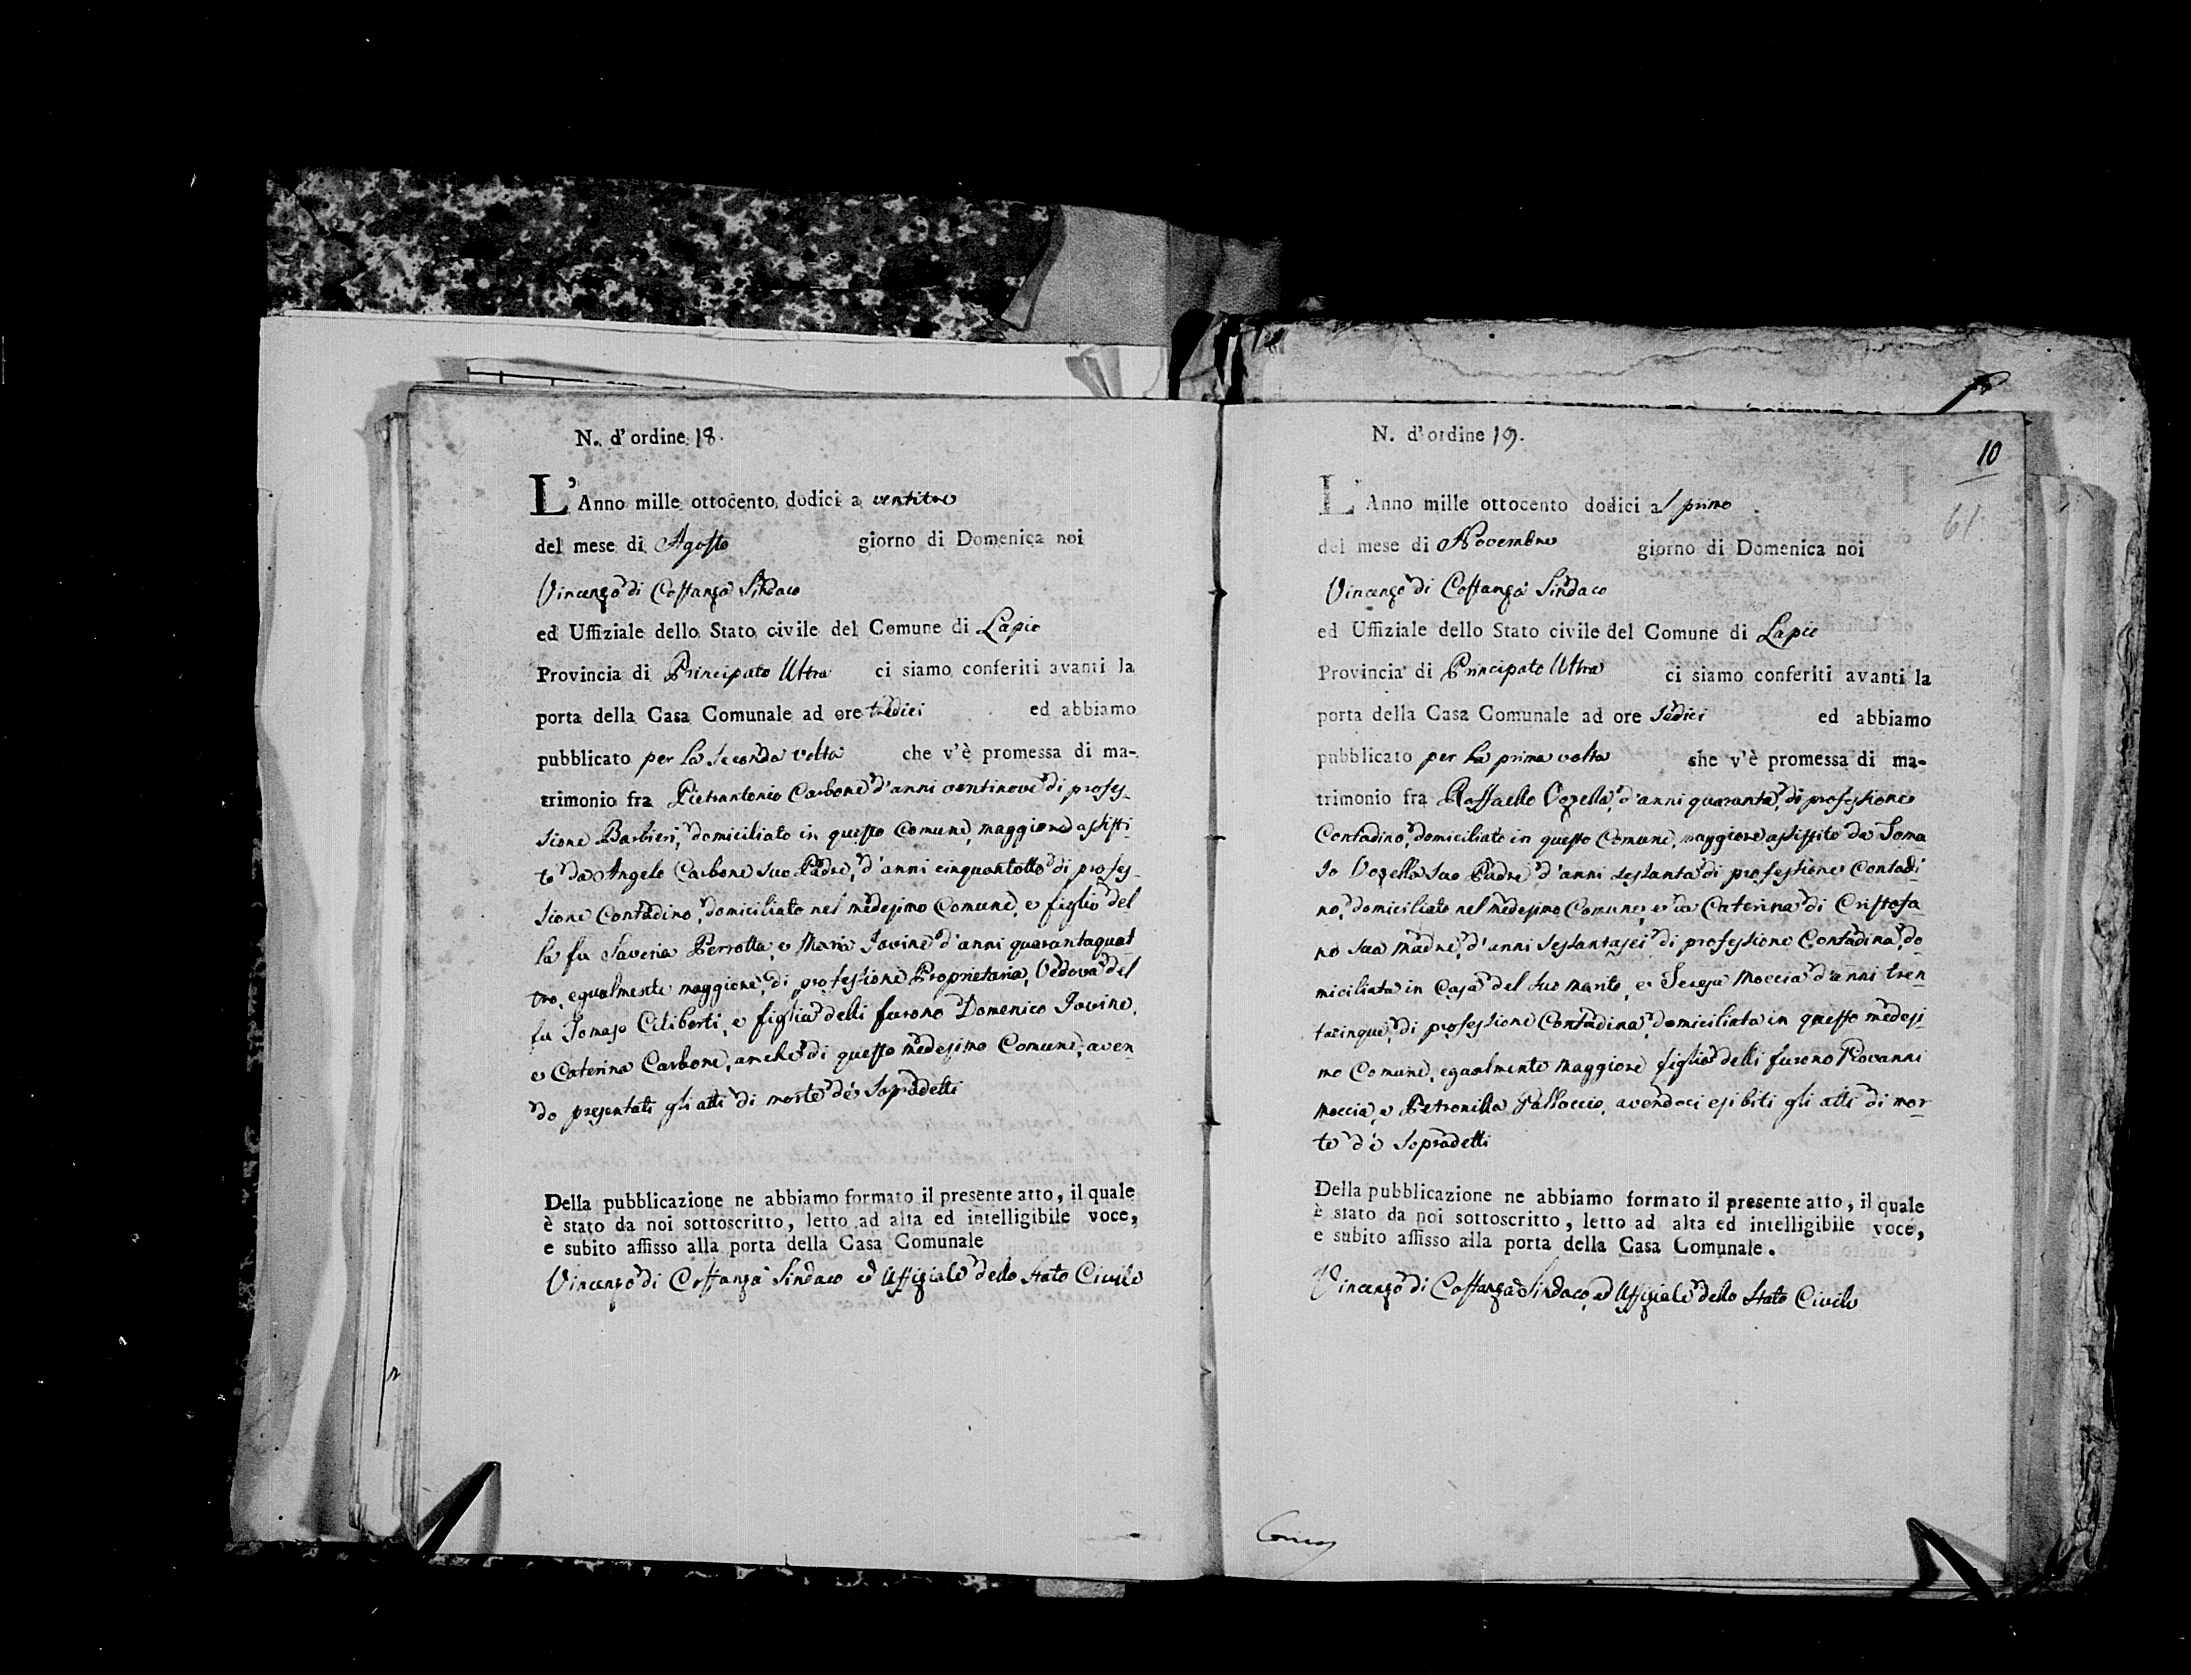 N. d'ordine 18.
L'Anno mille ottocento dodici a ventitre
del mese di Agosto giorno di Domenica noi
Vincenzo di Costanza Sindaco
ed Uffiziale dello Stato civile del Comune di Lapio
Provincia di Principato Ultra ci siamo conferiti avanti la
porta della Casa Comunale ad ore tredici ed abbiamo
pubblicato per la seconda volta che v'è promessa di ma-
trimonio fra Pietrantonio Carbone d'anni ventinove di profes-
sione Barbieri, domiciliato in questo Comune, maggiore assisti
to da Angelo Carbone suo Padre, d'anni cinquantotto di profes-
sione Contadino, domiciliato nel medesimo Comune, e figlio del
la fu Saveria Perrotta, e Maria Iovine d'anni quarantaquat
tro, egualmente maggiore, di professione Proprietaria, Vedova del
fu Tomaso Ciliberti, e figlia delli furono Domenico Iovine,
e Caterina Carbone, anche di questo medesimo Comune, aven
do presentati gli atti di morte de' sopradetti
Della pubblicazione ne abbiamo formato il presente atto, il quale
è stato da noi sottoscritto, letto ad alta ed intelligibile voce,
e subito affisso alla porta della Casa Comunale
Vincenzo di Costanza Sindaco ed Uffiziale dello Stato Civile
N. d'ordine 19.
10
61
L'Anno mille ottocento dodici al primo
del mese di Novembre giorno di Domenica noi
Vincenzo di Costanza Sindaco
ed Uffiziale dello Stato civile del Comune di Lapio
Provincia di Principato Ultra ci siamo conferiti avanti la
porta della Casa Comunale ad ore sedici ed abbiamo
pubblicato per la prima volta che v'è promessa di ma-
trimonio fra Raffaello Vozella, d'anni quaranta, di professione
Contadino, domiciliato in questo Comune, maggiore assistito da Toma
so Vozella suo Padre d'anni sessanta di professione Contadi
no, domiciliato nel medesimo Comune, e da Caterina di Cristofa
no sua Madre, d'anni sessantasei di professione Contadina, do
miciliata in Casa del suo marito, e Teresa Moccia d'anni tren
tacinque, di professione Contadina, domiciliata in questo medesi
mo Comune, egualmente maggiore figlia delli furono Giovanni
Moccia, e Petronilla Pallaccio, avendoci esibiti gli atti di mor
te de' sopradetti
Della pubblicazione ne abbiamo formato il presente atto, il quale
è stato da noi sottoscritto, letto ad alta ed intelligibile voce,
e subito affisso alla porta della Casa Comunale.
Vincenzo di Costanza Sindaco, ed Uffiziale dello Stato Civile